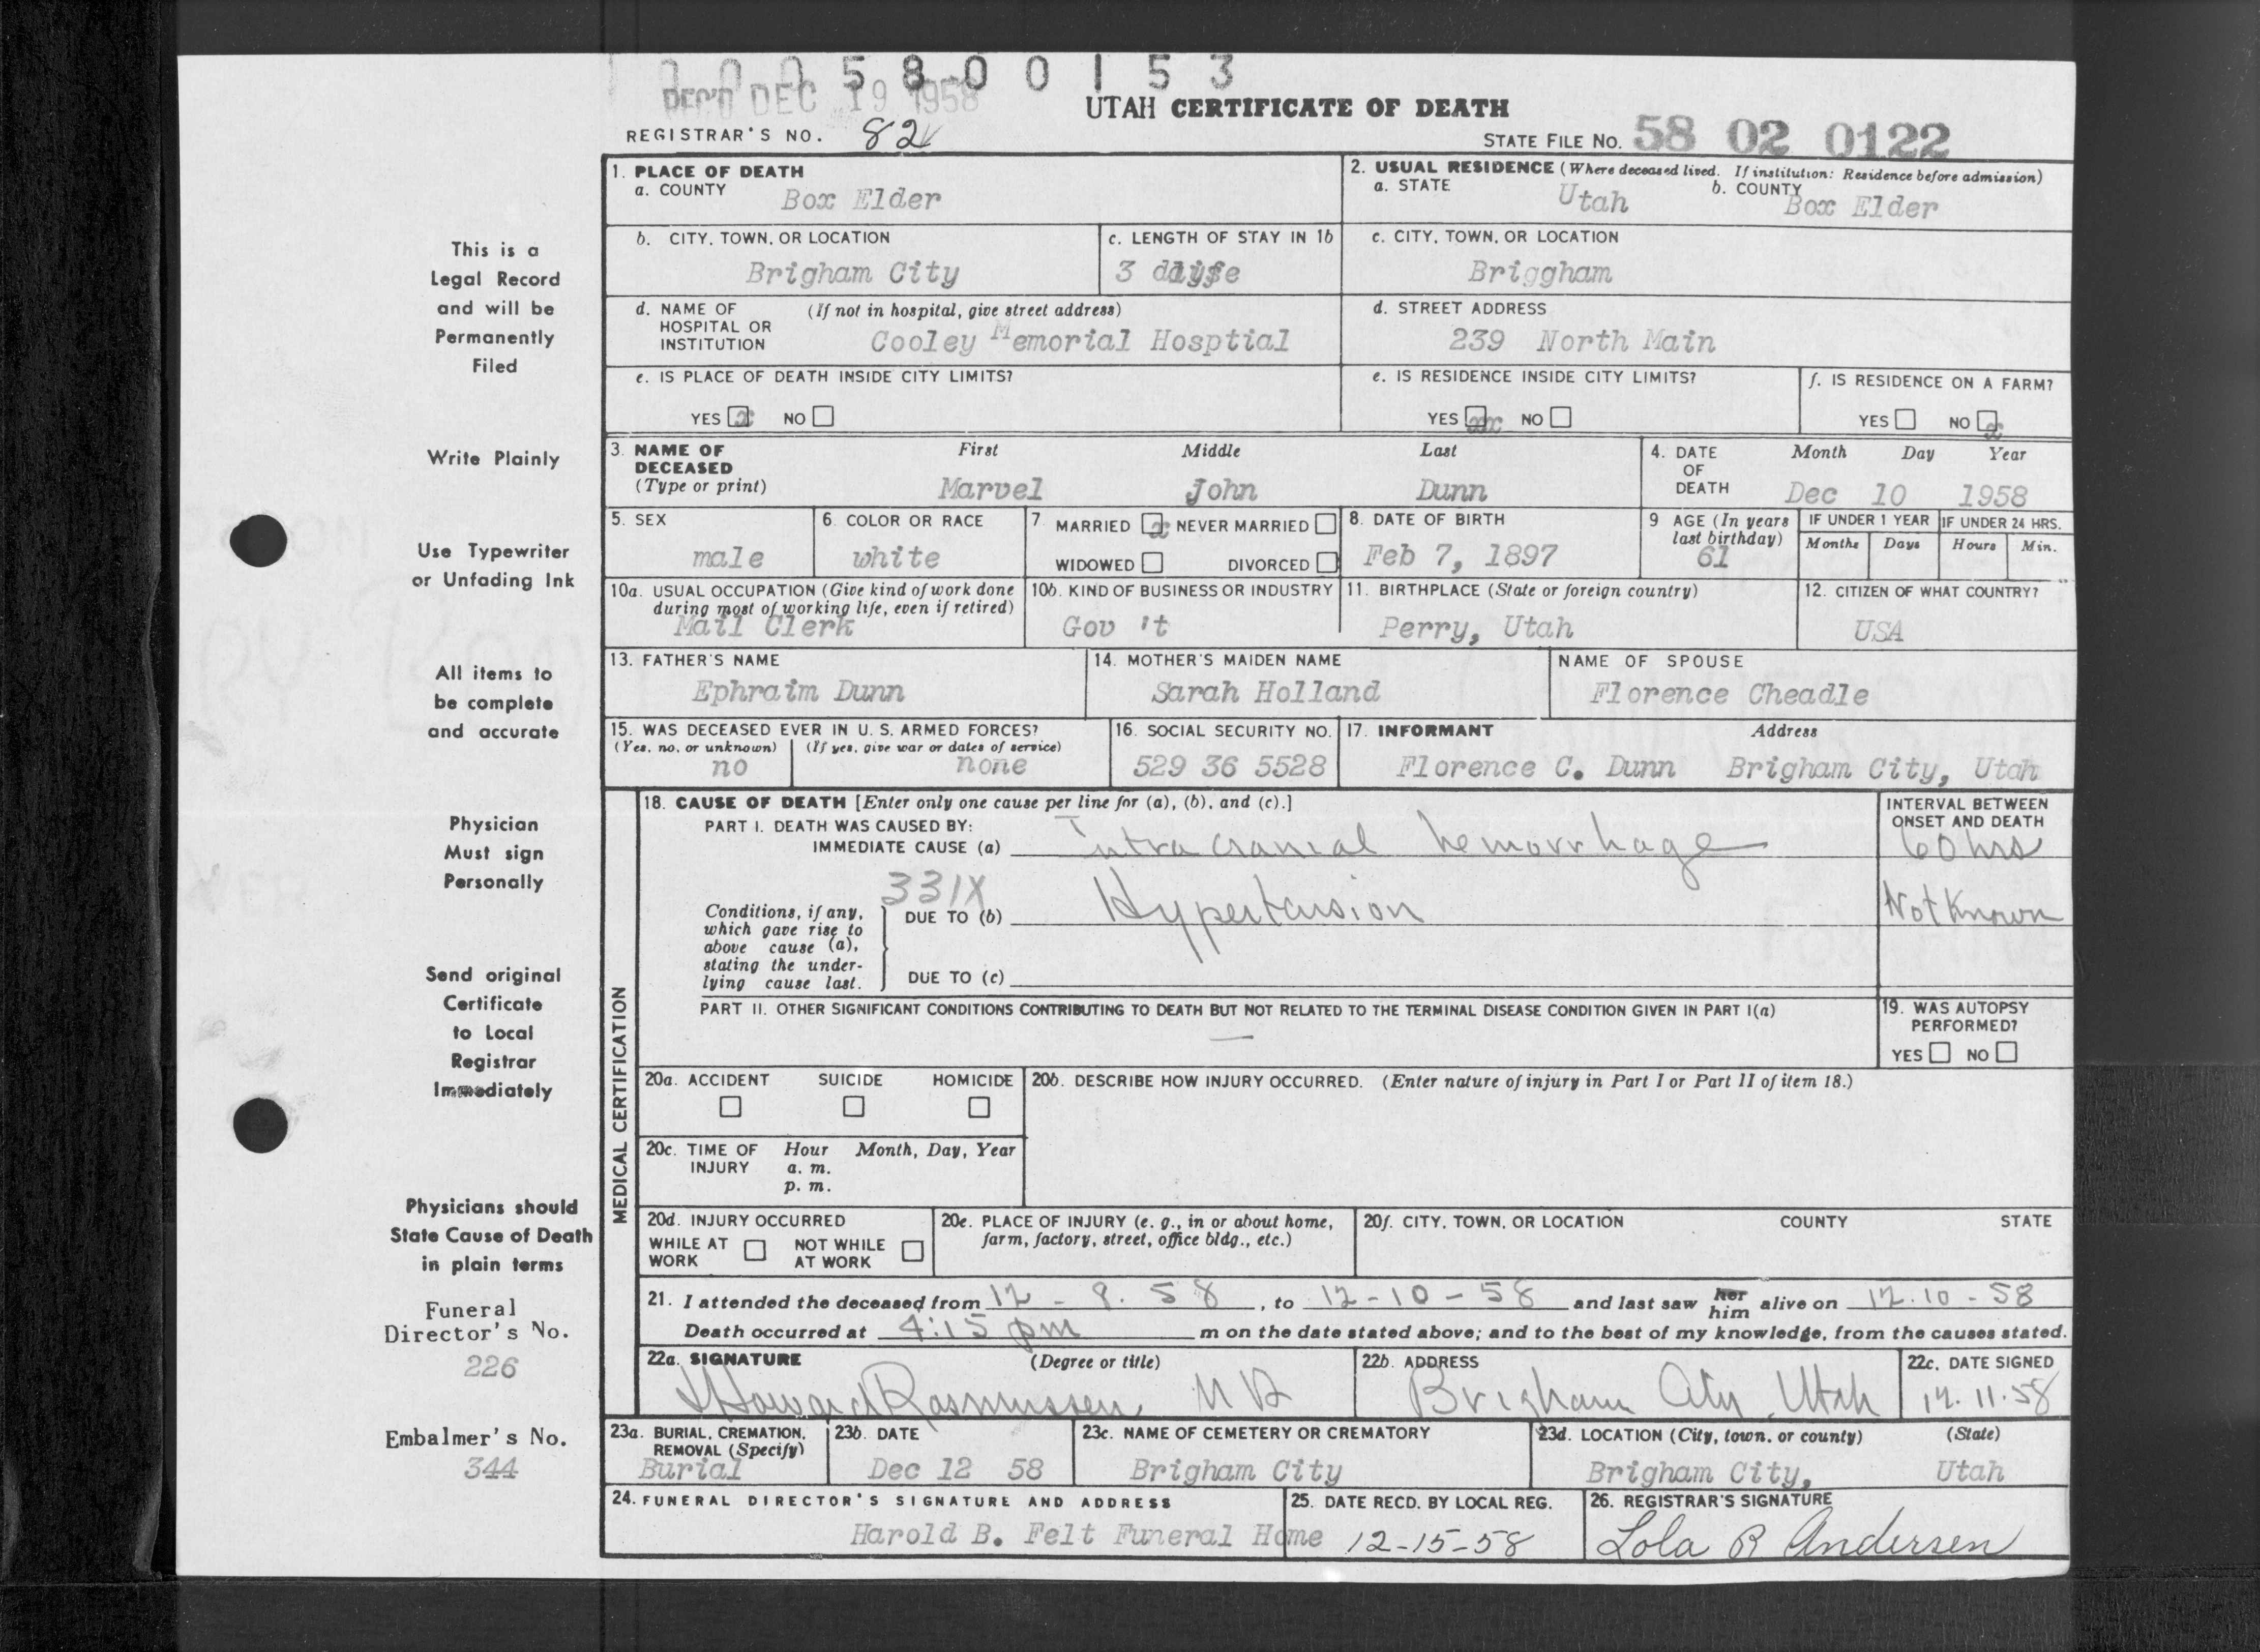 5 8 0 0 1 5 3
REC'D DEC 19 1958
UTAH CERTIFICATE OF DEATH
REGISTRAR'S NO. 82
STATE FILE No. 58 02 0122
1. PLACE OF DEATH
a. COUNTY Box Elder
2. USUAL RESIDENCE (Where deceased lived. If institution: Residence before admission)
a. STATE Utah b. COUNTY Box Elder
b. CITY, TOWN, OR LOCATION Brigham City
c. LENGTH OF STAY IN 1b 3
c. CITY, TOWN, OR LOCATION Briggham
d. NAME OF HOSPITAL OR INSTITUTION (If not in hospital, give street address)
Cooley Memorial Hosptial
d. STREET ADDRESS
239 North Main
e. IS PLACE OF DEATH INSIDE CITY LIMITS?
YES x NO
e. IS RESIDENCE INSIDE CITY LIMITS?
YES xx NO
f. IS RESIDENCE ON A FARM?
YES NO x
3. NAME OF DECEASED (Type or print)
First Middle Last
Marvel John Dunn
4. DATE OF DEATH Month Day Year
Dec 10 1958
5. SEX
male
6. COLOR OR RACE
white
7. MARRIED x NEVER MARRIED
WIDOWED DIVORCED
8. DATE OF BIRTH
Feb 7, 1897
9 AGE (In years last birthday)
61
IF UNDER 1 YEAR
Months Days
IF UNDER 24 HRS.
Hours Min.
10a. USUAL OCCUPATION (Give kind of work done during most of working life, even if retired)
Mail Clerk
10b. KIND OF BUSINESS OR INDUSTRY
Gov 't
11. BIRTHPLACE (State or foreign country)
Perry, Utah
12. CITIZEN OF WHAT COUNTRY?
USA
13. FATHER'S NAME
Ephraim Dunn
14. MOTHER'S MAIDEN NAME
Sarah Holland
NAME OF SPOUSE
Florence Cheadle
15. WAS DECEASED EVER IN U. S. ARMED FORCES?
(Yes, no, or unknown) (If yes, give war or dates of service)
no none
16. SOCIAL SECURITY NO.
529 36 5528
17. INFORMANT Address
Florence C. Dunn Brigham City, Utah
MEDICAL CERTIFICATION
18. CAUSE OF DEATH [Enter only one cause per line for (a), (b), and (c).]
PART I. DEATH WAS CAUSED BY:
IMMEDIATE CAUSE (a) Intra cranial hemorrhage
INTERVAL BETWEEN ONSET AND DEATH
60 hrs
331X
Conditions, if any, which gave rise to above cause (a), stating the underlying cause last.
DUE TO (b) Hypertension
Not Known
DUE TO (c)
PART II. OTHER SIGNIFICANT CONDITIONS CONTRIBUTING TO DEATH BUT NOT RELATED TO THE TERMINAL DISEASE CONDITION GIVEN IN PART I(a)
—
19. WAS AUTOPSY PERFORMED?
YES NO
20a. ACCIDENT SUICIDE HOMICIDE
20b. DESCRIBE HOW INJURY OCCURRED. (Enter nature of injury in Part I or Part II of item 18.)
20c. TIME OF INJURY Hour Month, Day, Year
a. m.
p. m.
20d. INJURY OCCURRED
WHILE AT WORK NOT WHILE AT WORK
20e. PLACE OF INJURY (e. g., in or about home, farm, factory, street, office bldg., etc.)
20f. CITY, TOWN, OR LOCATION COUNTY STATE
21. I attended the deceased from 12 - 8. 58, to 12-10-58 and last saw her him alive on 12.10-58
Death occurred at 4:15 pm m on the date stated above; and to the best of my knowledge, from the causes stated.
22a. SIGNATURE (Degree or title)
Howard Rasmussen M D
22b. ADDRESS
Brigham City, Utah
22c. DATE SIGNED
12.11.58
23a. BURIAL, CREMATION, REMOVAL (Specify)
Burial
23b. DATE
Dec 12 58
23c. NAME OF CEMETERY OR CREMATORY
Brigham City
23d. LOCATION (City, town, or county) (State)
Brigham City, Utah
24. FUNERAL DIRECTOR'S SIGNATURE AND ADDRESS
Harold B. Felt Funeral Home
25. DATE RECD. BY LOCAL REG.
12-15-58
26. REGISTRAR'S SIGNATURE
Lola R Andersen
This is a
Legal Record
and will be
Permanently
Filed
Write Plainly
Use Typewriter
or Unfading Ink
All items to
be complete
and accurate
Physician
Must sign
Personally
Send original
Certificate
to Local
Registrar
Immediately
Physicians should
State Cause of Death
in plain terms
Funeral
Director's No.
226
Embalmer's No.
344